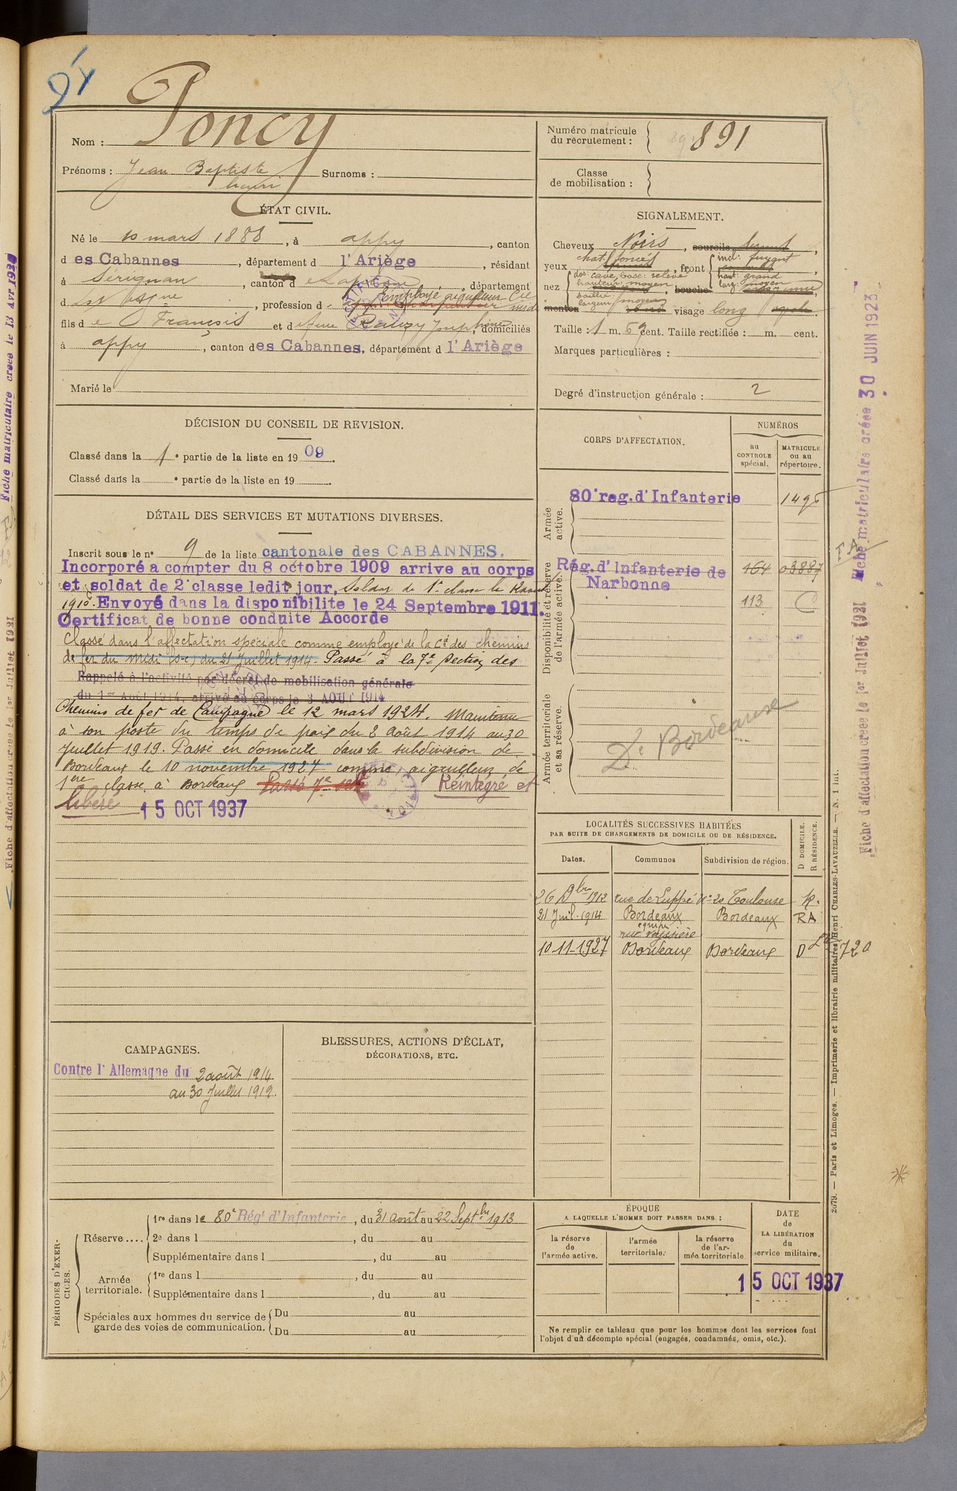 94
Nom : Poncy
Prénoms : Jean Baptiste Surnoms :
Henri
ÉTAT CIVIL.
Né le 10 mars 1888, à appy, canton
des Cabannes, département d l'Ariège, résidant
à Sérignan, canton d, département
d, profession d employé aiguilleur Cie
Midi
fils de François et d domiciliés
à appy, canton des Cabannes, département d l'Ariège
Marié le
DÉCISION DU CONSEIL DE REVISION.
Classé dans la 1e partie de la liste en 1909
Classé dans la e partie de la liste en 19
DÉTAIL DES SERVICES ET MUTATIONS DIVERSES.
Inscrit sous le no 9 de la liste cantonale des CABANNES.
Incorporé a compter du 8 octobre 1909 arrive au corps
et soldat de 2e classe ledit jour, Soldat de 1e classe le
1910. Envoyé dans la disponibilite le 24 Septembre 1911.
Certificat de bonne conduite Accorde
Classé dans l'affectation spéciale comme employé de la Cie des chemins
de fer du midi du 21 Juillet 1914. Passé à la 7e Section des
Rappelé à l'activité par décret de mobilisation générale
du 1er Août 1914, arrivé au corps le 3 AOUT 1914
Chemins de fer de Campagne le 12 mars 1924. Maintenu
à son poste du temps de paix du 2 août 1914 au 30
Juillet 1919. Passé en domicile dans la subdivision de
Bordeaux le 10 novembre 1927 comme aiguilleur de
1ere classe, à Bordeaux Passé 7e Réintégré et
libéré 15 OCT 1937
CAMPAGNES.
Contre l'Allemagne du 2 août 1914
au 30 Juillet 1919.
BLESSURES, ACTIONS D'ÉCLAT,
DÉCORATIONS, ETC.
PÉRIODES D'EXERCICES.
Réserve....
1re dans le 80e Régt d'Infanterie, du 31 août au 22 Septbre 1913
2e dans l, du au
Supplémentaire dans l, du au
Armée territoriale.
1re dans l, du au
Supplémentaire dans l, du au
Spéciales aux hommes du service de garde des voies de communication.
Du au
Du au
Numéro matricule
du recrutement : 891
Classe
de mobilisation :
SIGNALEMENT.
Cheveux Noirs, sourcils
yeux chat. foncés, front incl. fuyant
haut. grand
larg. moyen
nez dos cave, base relevé
hauteur moyen, bouche
saillie
largeur moyen
menton visage long
Taille : 1 m. 63 cent. Taille rectifiée : m. cent.
Marques particulières :
Degré d'instruction générale : 2
CORPS D'AFFECTATION.
NUMÉROS
au
CONTROLE
spécial.
MATRICULE
ou au
répertoire.
Armée active.
80e reg. d'Infanterie 1495
Disponibilité et réserve de l'armée active.
Rég. d'Infanterie de
Narbonne
464 03887
113
Armée territoriale et sa réserve.
De Bordeaux
LOCALITÉS SUCCESSIVES HABITÉES
PAR SUITE DE CHANGEMENTS DE DOMICILE OU DE RÉSIDENCE.
Dates. Communes Subdivision de région. D. DOMICILE. R. RÉSIDENCE.
26 Dbre 1912 Toulouse R.
21 Juil. 1914 Bordeaux Bordeaux RA
10.11.1927 Bordeaux Bordeaux D 720
ÉPOQUE
A LAQUELLE L'HOMME DOIT PASSER DANS :
la réserve
de
l'armée active.
l'armée
territoriale.
la réserve
de l'armée territoriale
DATE
de
LA LIBÉRATION
du
service militaire.
15 OCT 1937
Ne remplir ce tableau que pour les hommes dont les services font
l'objet d'un décompte spécial (engagés, condamnés, omis, etc.).
2079. — Paris et Limoges. — Imprimerie et librairie militaires Henri CHARLES-LAVAUZELLE.
Fiche matriculaire créée 30 JUIN 1923
Fiche d'affectation créée le 1er Juillet 1921